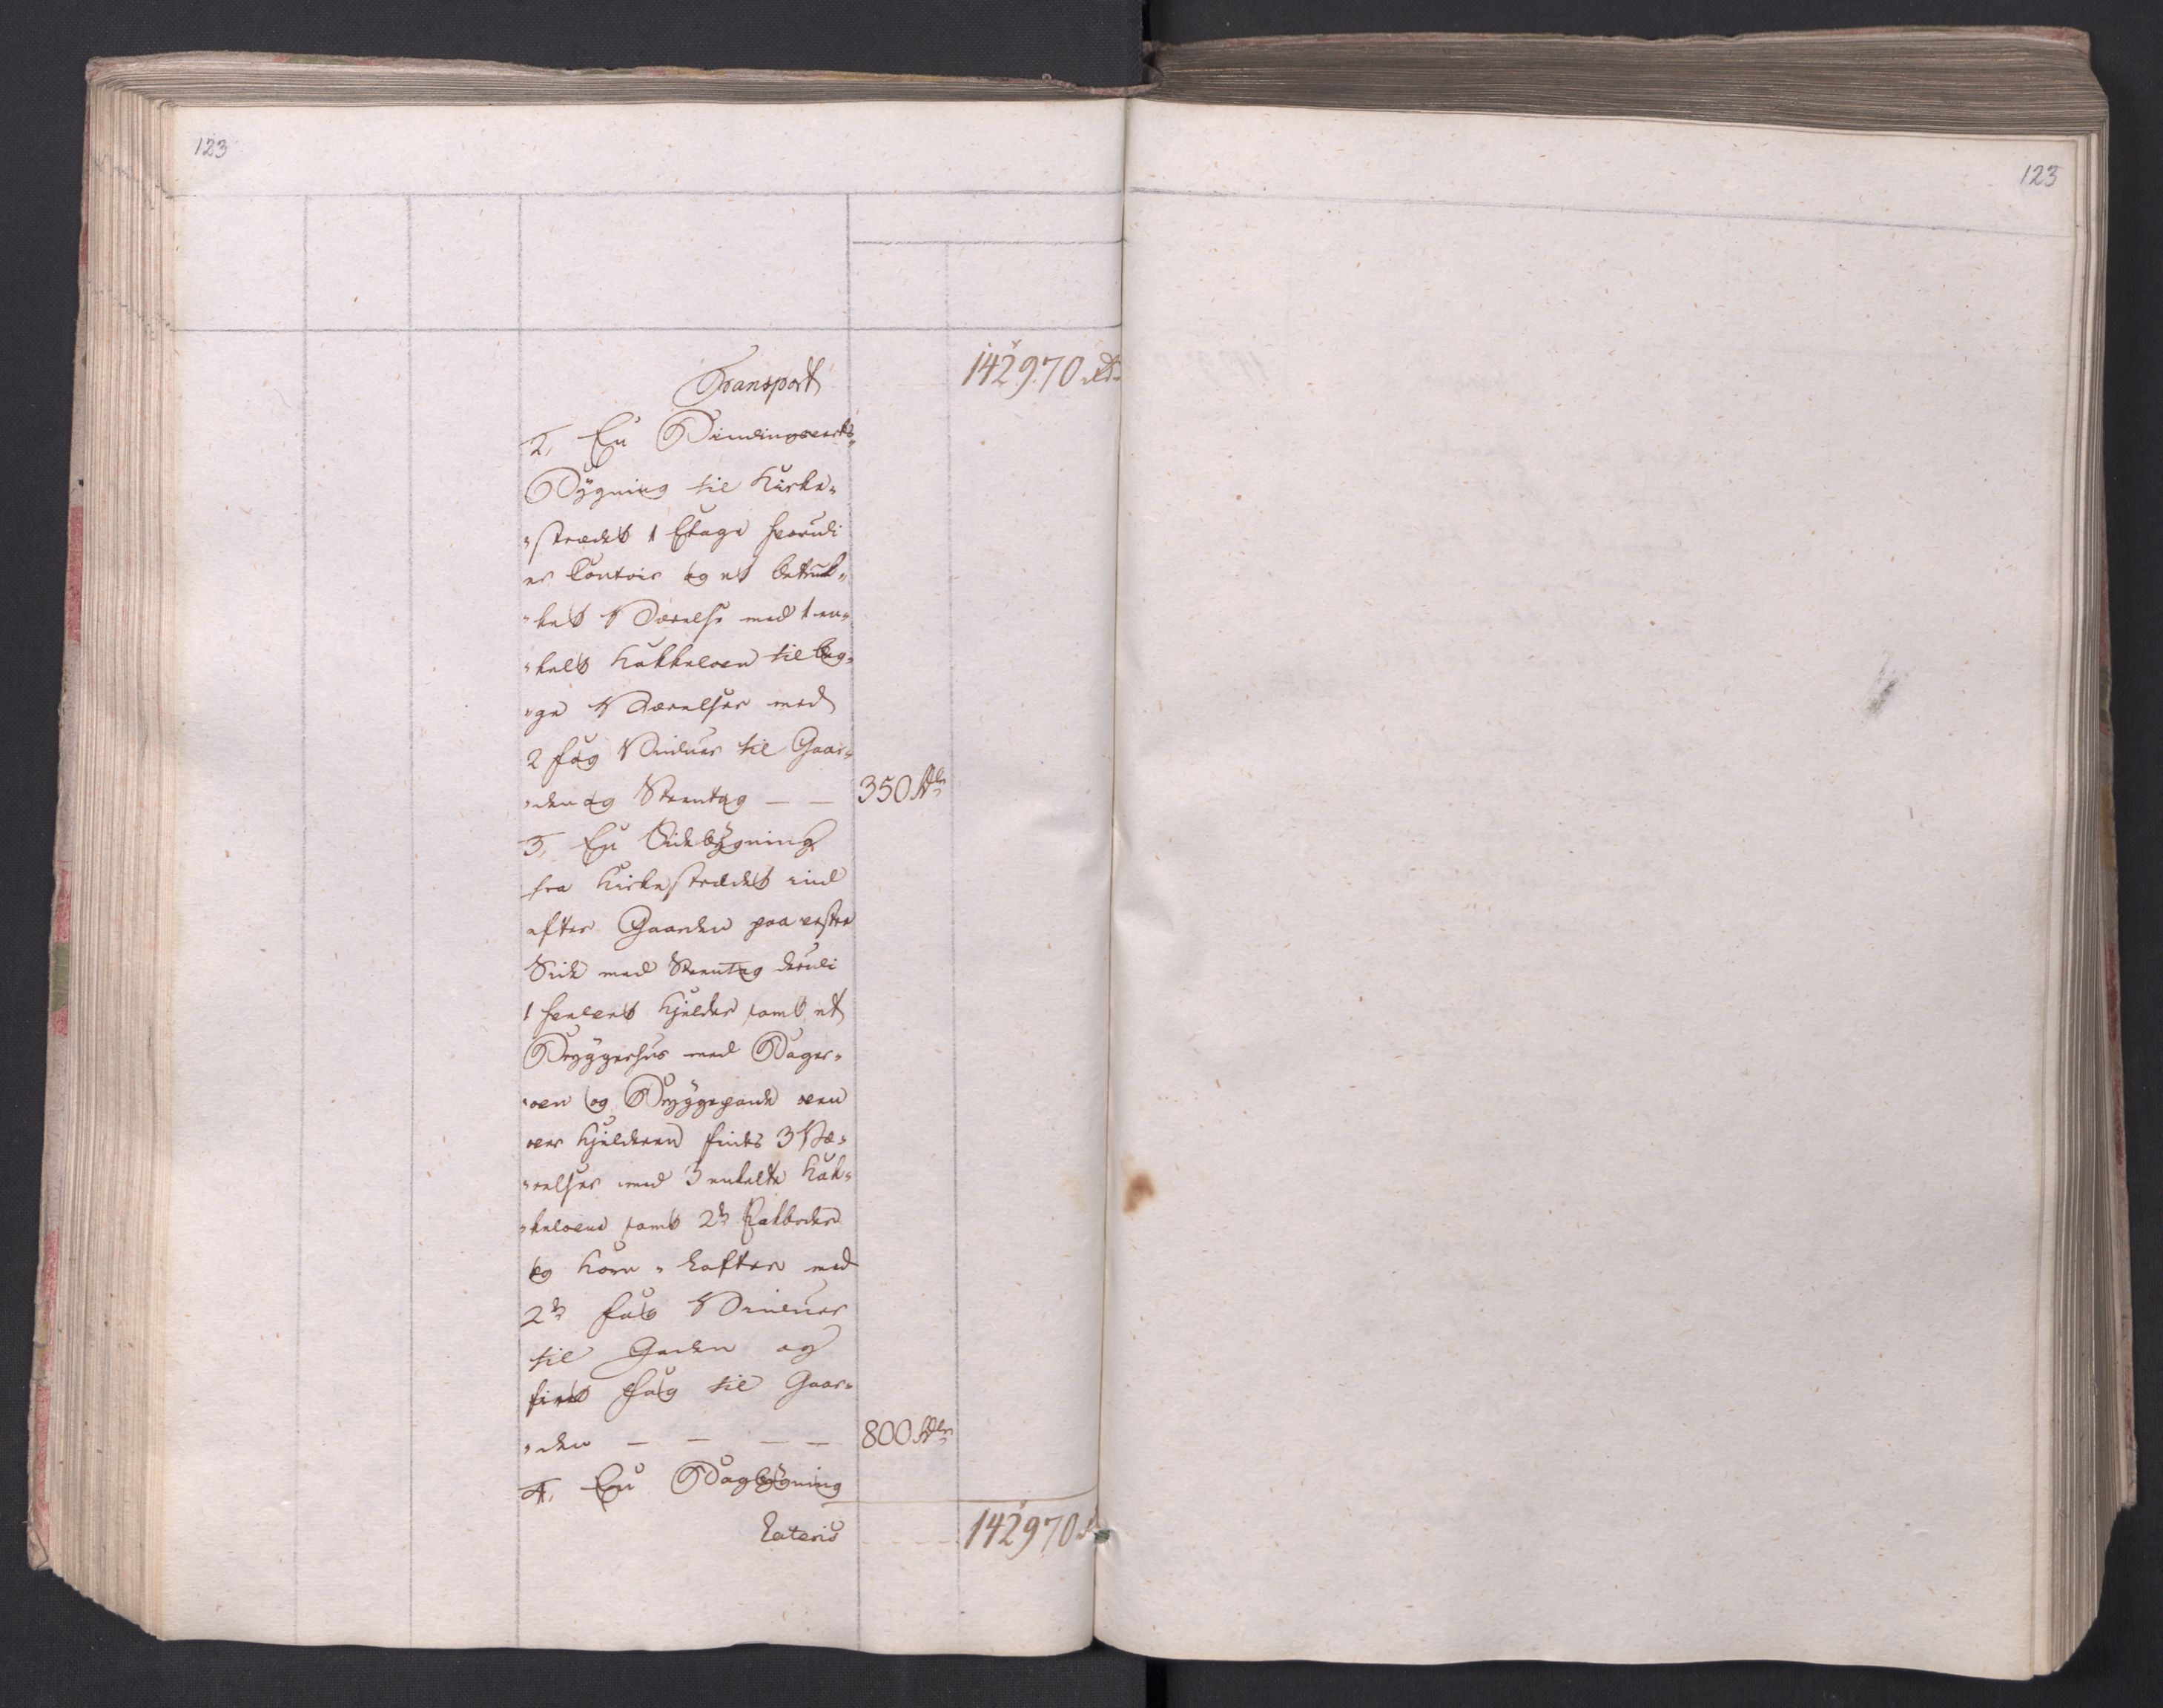 123
123
Transport 142970 rd
2, En Bindingsverks
Bÿgning til Kirke-
strædet 1 Etage hvorudi
er Contoir og et betruk-
ket Værelse med 1 en-
kelt Kakkeloen til beg-
ge Værelser med
2 fag Vinduer til Gaar-
den og Steentag — — 350 Rdlr
3, En Sidebÿgning
fra Kirkestrædet ind
efter Gaarden paa vestre
Side med Steentag derudi
1 hvelvet Kjelder samt et
Brÿggerhus med Bager-
oen og Brÿggepande oven
over Kjelderen findes 3 Væ-
relser med 3 enkelte Kak-
keloene samt 2de
og Korn-Lofter med
2de fag Vinduer
til Gaden og
fiire fag til Gaar-
den — — — — 800 Rdlr
4, En Bagbÿgning
Lateris 142970